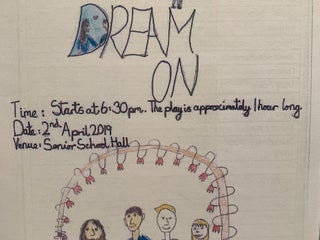 DREAM
ON
Time: Starts at 6:30pm. The play is approximately 1 hour long
Date: 2nd April 2019
Venue: Senior School Hall